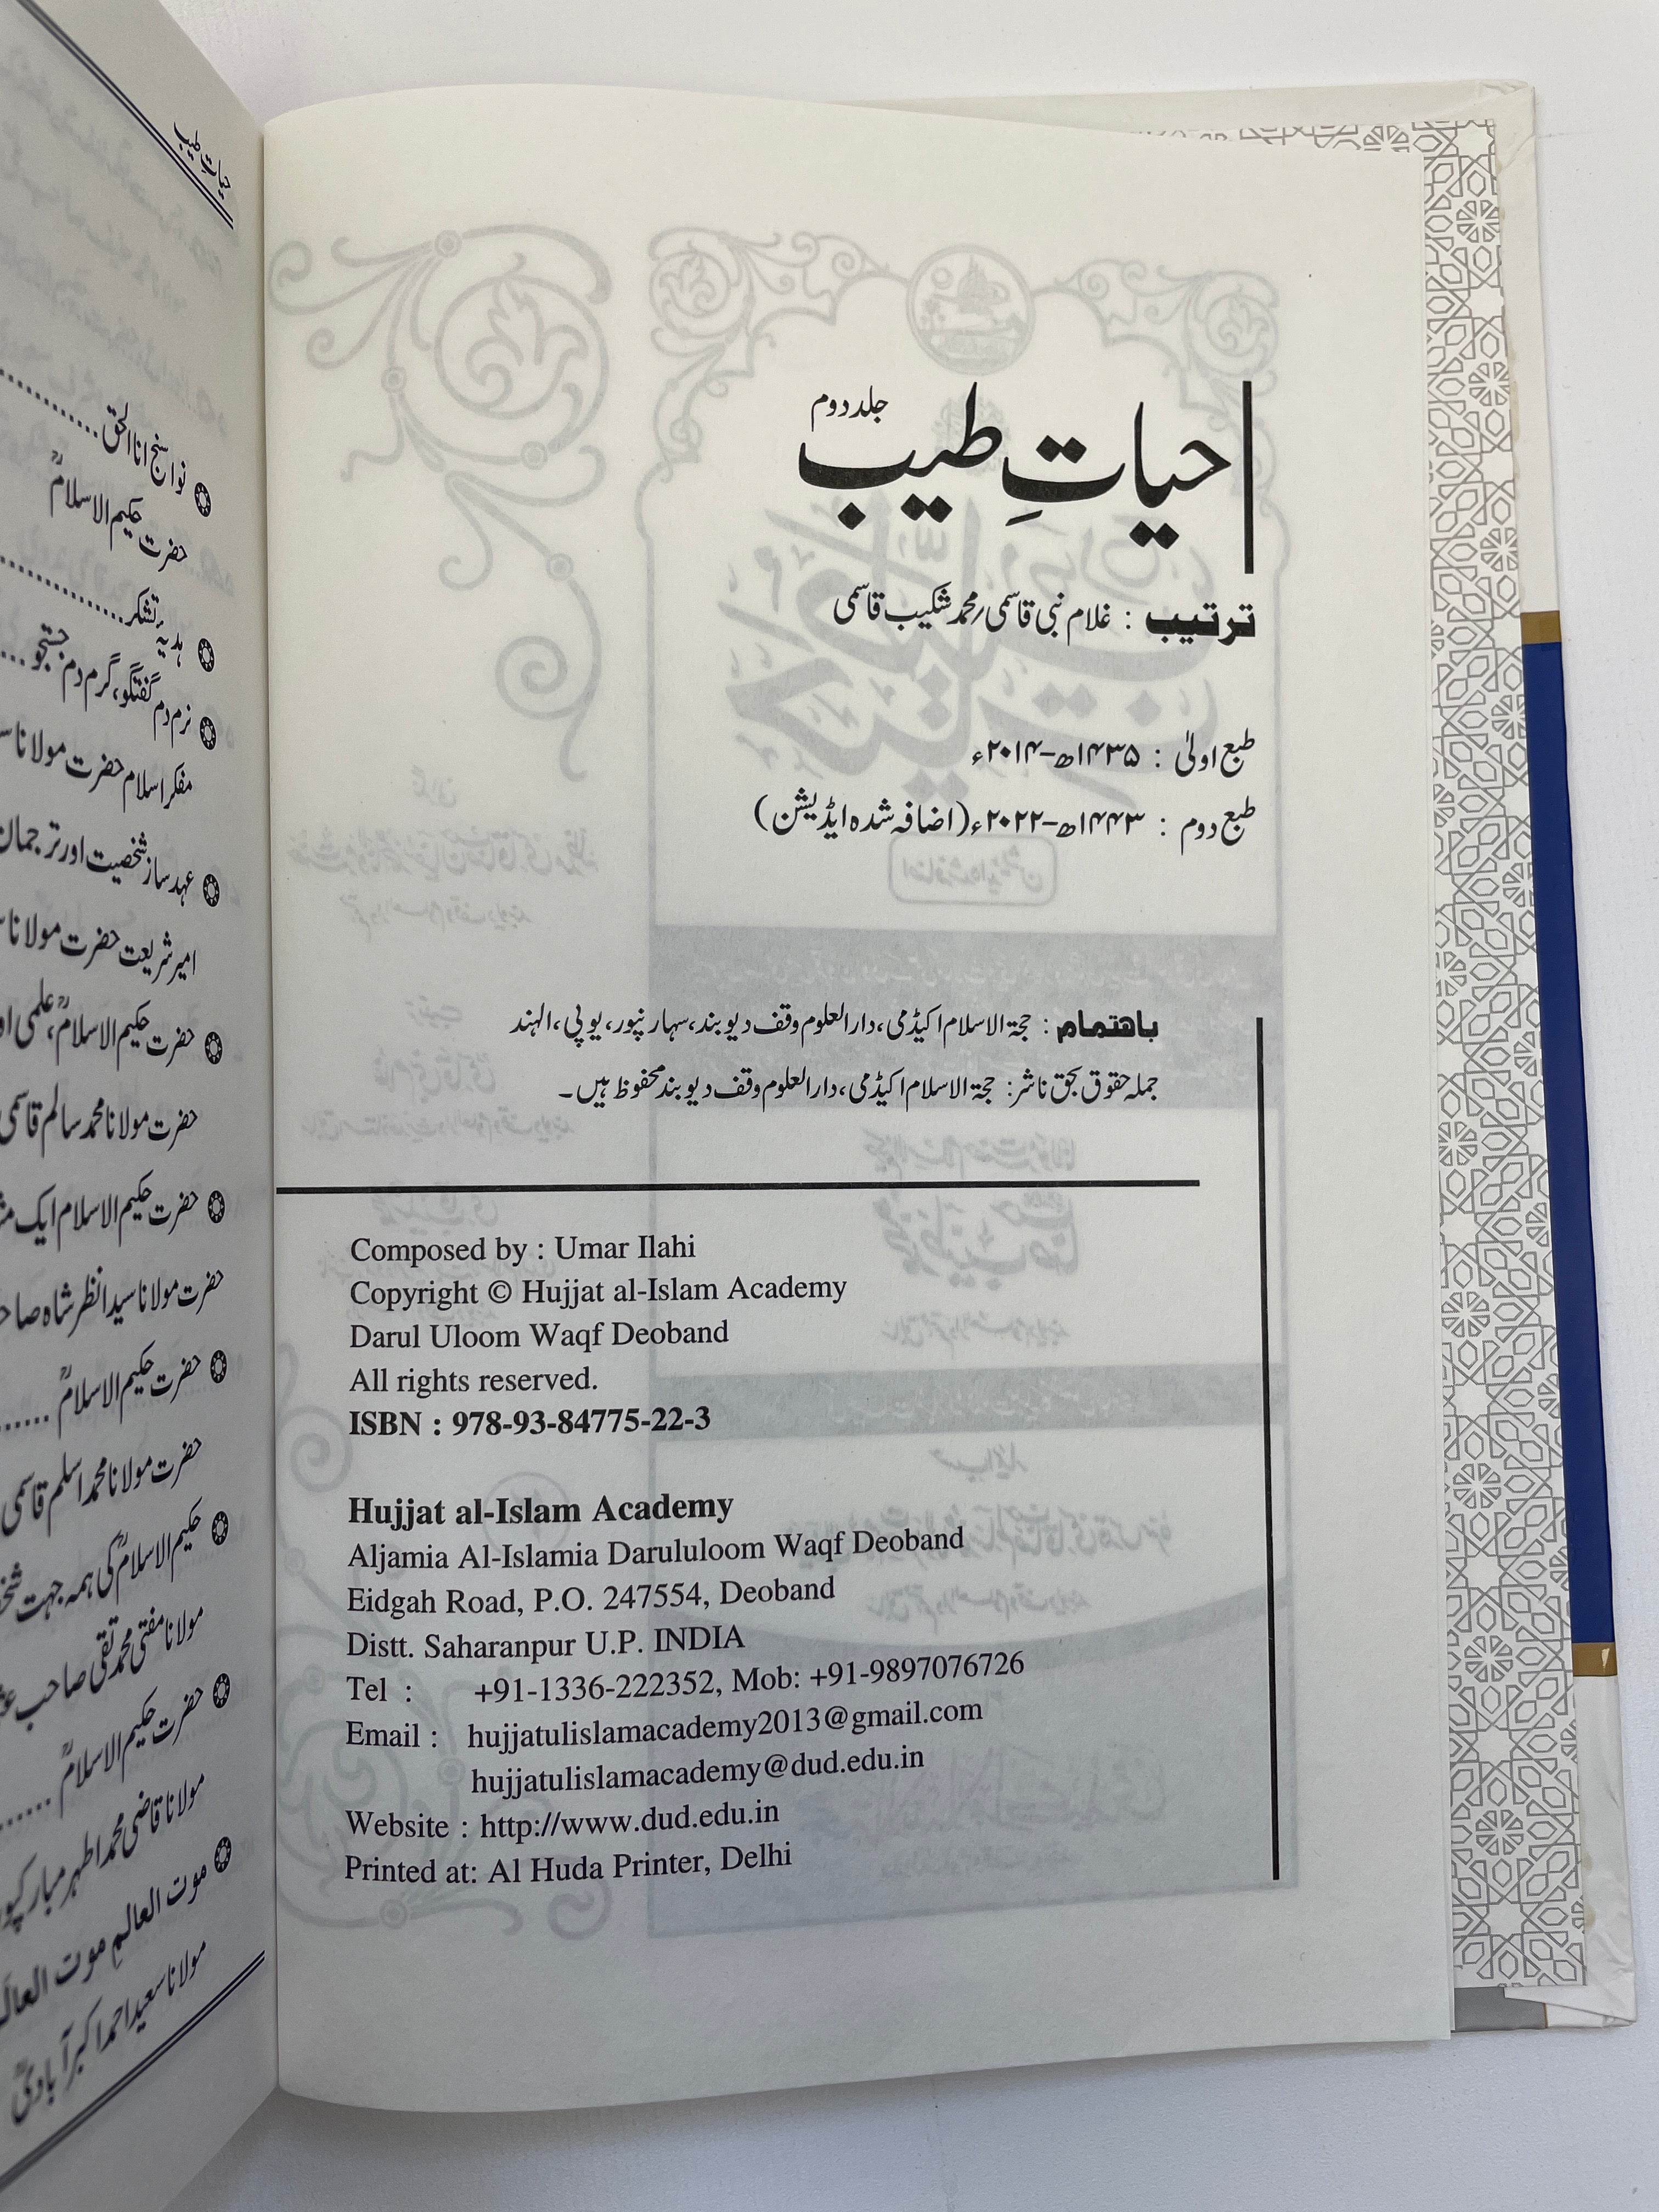 حیاتِ طیب جلد دوم
ترتیب : غلام نبی قاسمی/محمد شکیب قاسمی
طبع اولیٰ : ۱۴۳۵ھ-۲۰۱۴ء
طبع دوم : ۱۴۴۳ھ-۲۰۲۲ء (اضافہ شدہ ایڈیشن)
باهتمام : حجۃ الاسلام اکیڈمی، دارالعلوم وقف دیوبند، سہارنپور، یوپی، الہند
جملہ حقوق بحق ناشر: حجۃ الاسلام اکیڈمی، دارالعلوم وقف دیوبند محفوظ ہیں۔
Composed by : Umar Ilahi
Copyright © Hujjat al-Islam Academy
Darul Uloom Waqf Deoband
All rights reserved.
ISBN : 978-93-84775-22-3
Hujjat al-Islam Academy
Aljamia Al-Islamia Darululoom Waqf Deoband
Eidgah Road, P.O. 247554, Deoband
Distt. Saharanpur U.P. INDIA
Tel : +91-1336-222352, Mob: +91-9897076726
Email : hujjatulislamacademy2013@gmail.com
hujjatulislamacademy@dud.edu.in
Website : http://www.dud.edu.in
Printed at: Al Huda Printer, Delhi
حیاتِ طیب
نواسنج انا الحق
حضرت حکیم الاسلامؒ
ہدیۂ تشکر
نرم دم گفتگو، گرم دم جستجو
مفکر اسلام حضرت مولانا
عہد ساز شخصیت اور ترجمان
امیر شریعت حضرت مولانا
حضرت حکیم الاسلامؒ، علمی
حضرت مولانا محمد سالم قاسمی
حضرت حکیم الاسلام ایک
حضرت مولانا سید انظر شاہ
حضرت حکیم الاسلامؒ
حضرت مولانا محمد اسلم قاسمی
حکیم الاسلامؒ کی ہمہ جہت
مولانا مفتی محمد تقی صاحب
حضرت حکیم الاسلامؒ
مولانا قاضی محمد اطہر
موت العالم موت العالم
مولانا سعید احمد اکبر آبادیؒ